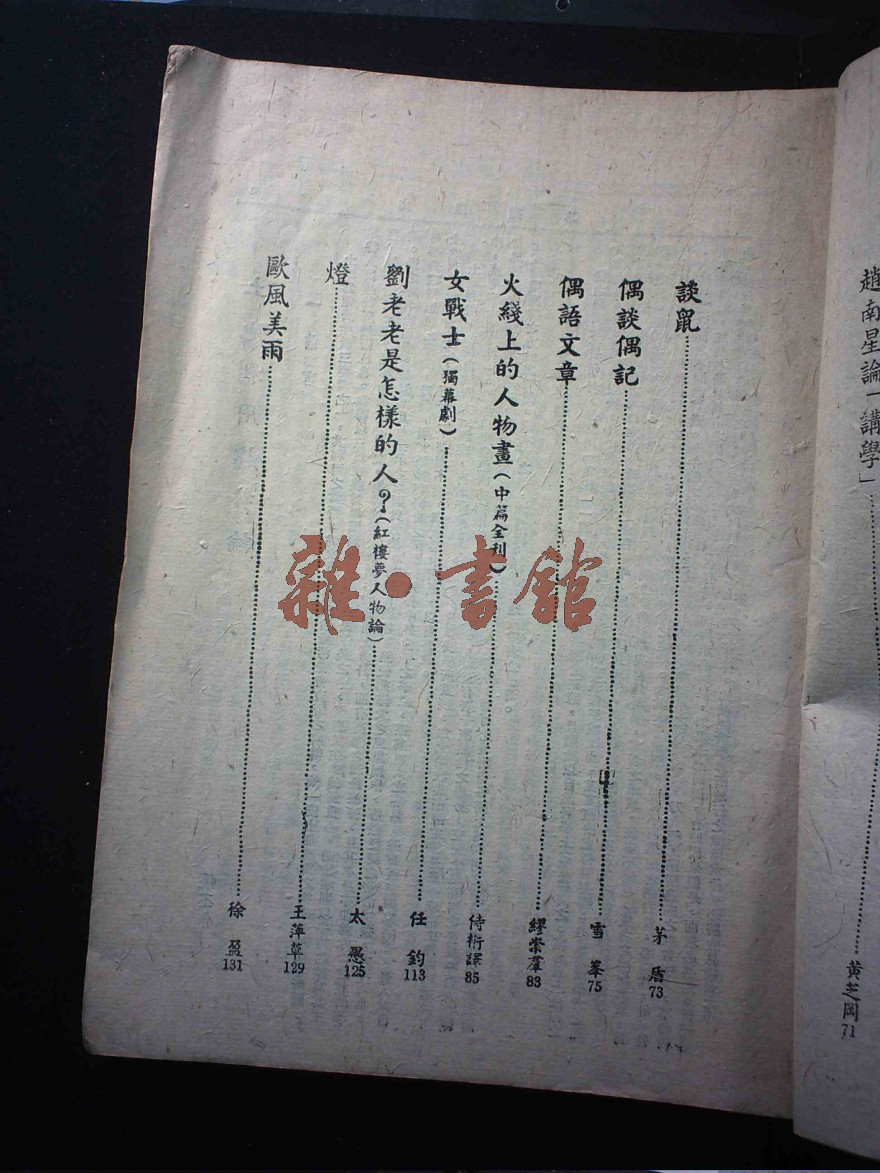 趙南星論「講學」 黃芝岡 71
談鼠 茅盾 73
偶談偶記 雪峯 75
偶語文章 繆崇羣 83
火綫上的人物畫(中篇全刊) 侍桁譯 85
女戰士(獨幕劇) 任鈞 113
劉老老是怎樣的人?(紅樓夢人物論) 太愚 125
燈 王萍草 129
歐風美雨 徐盈 131
雜·書館